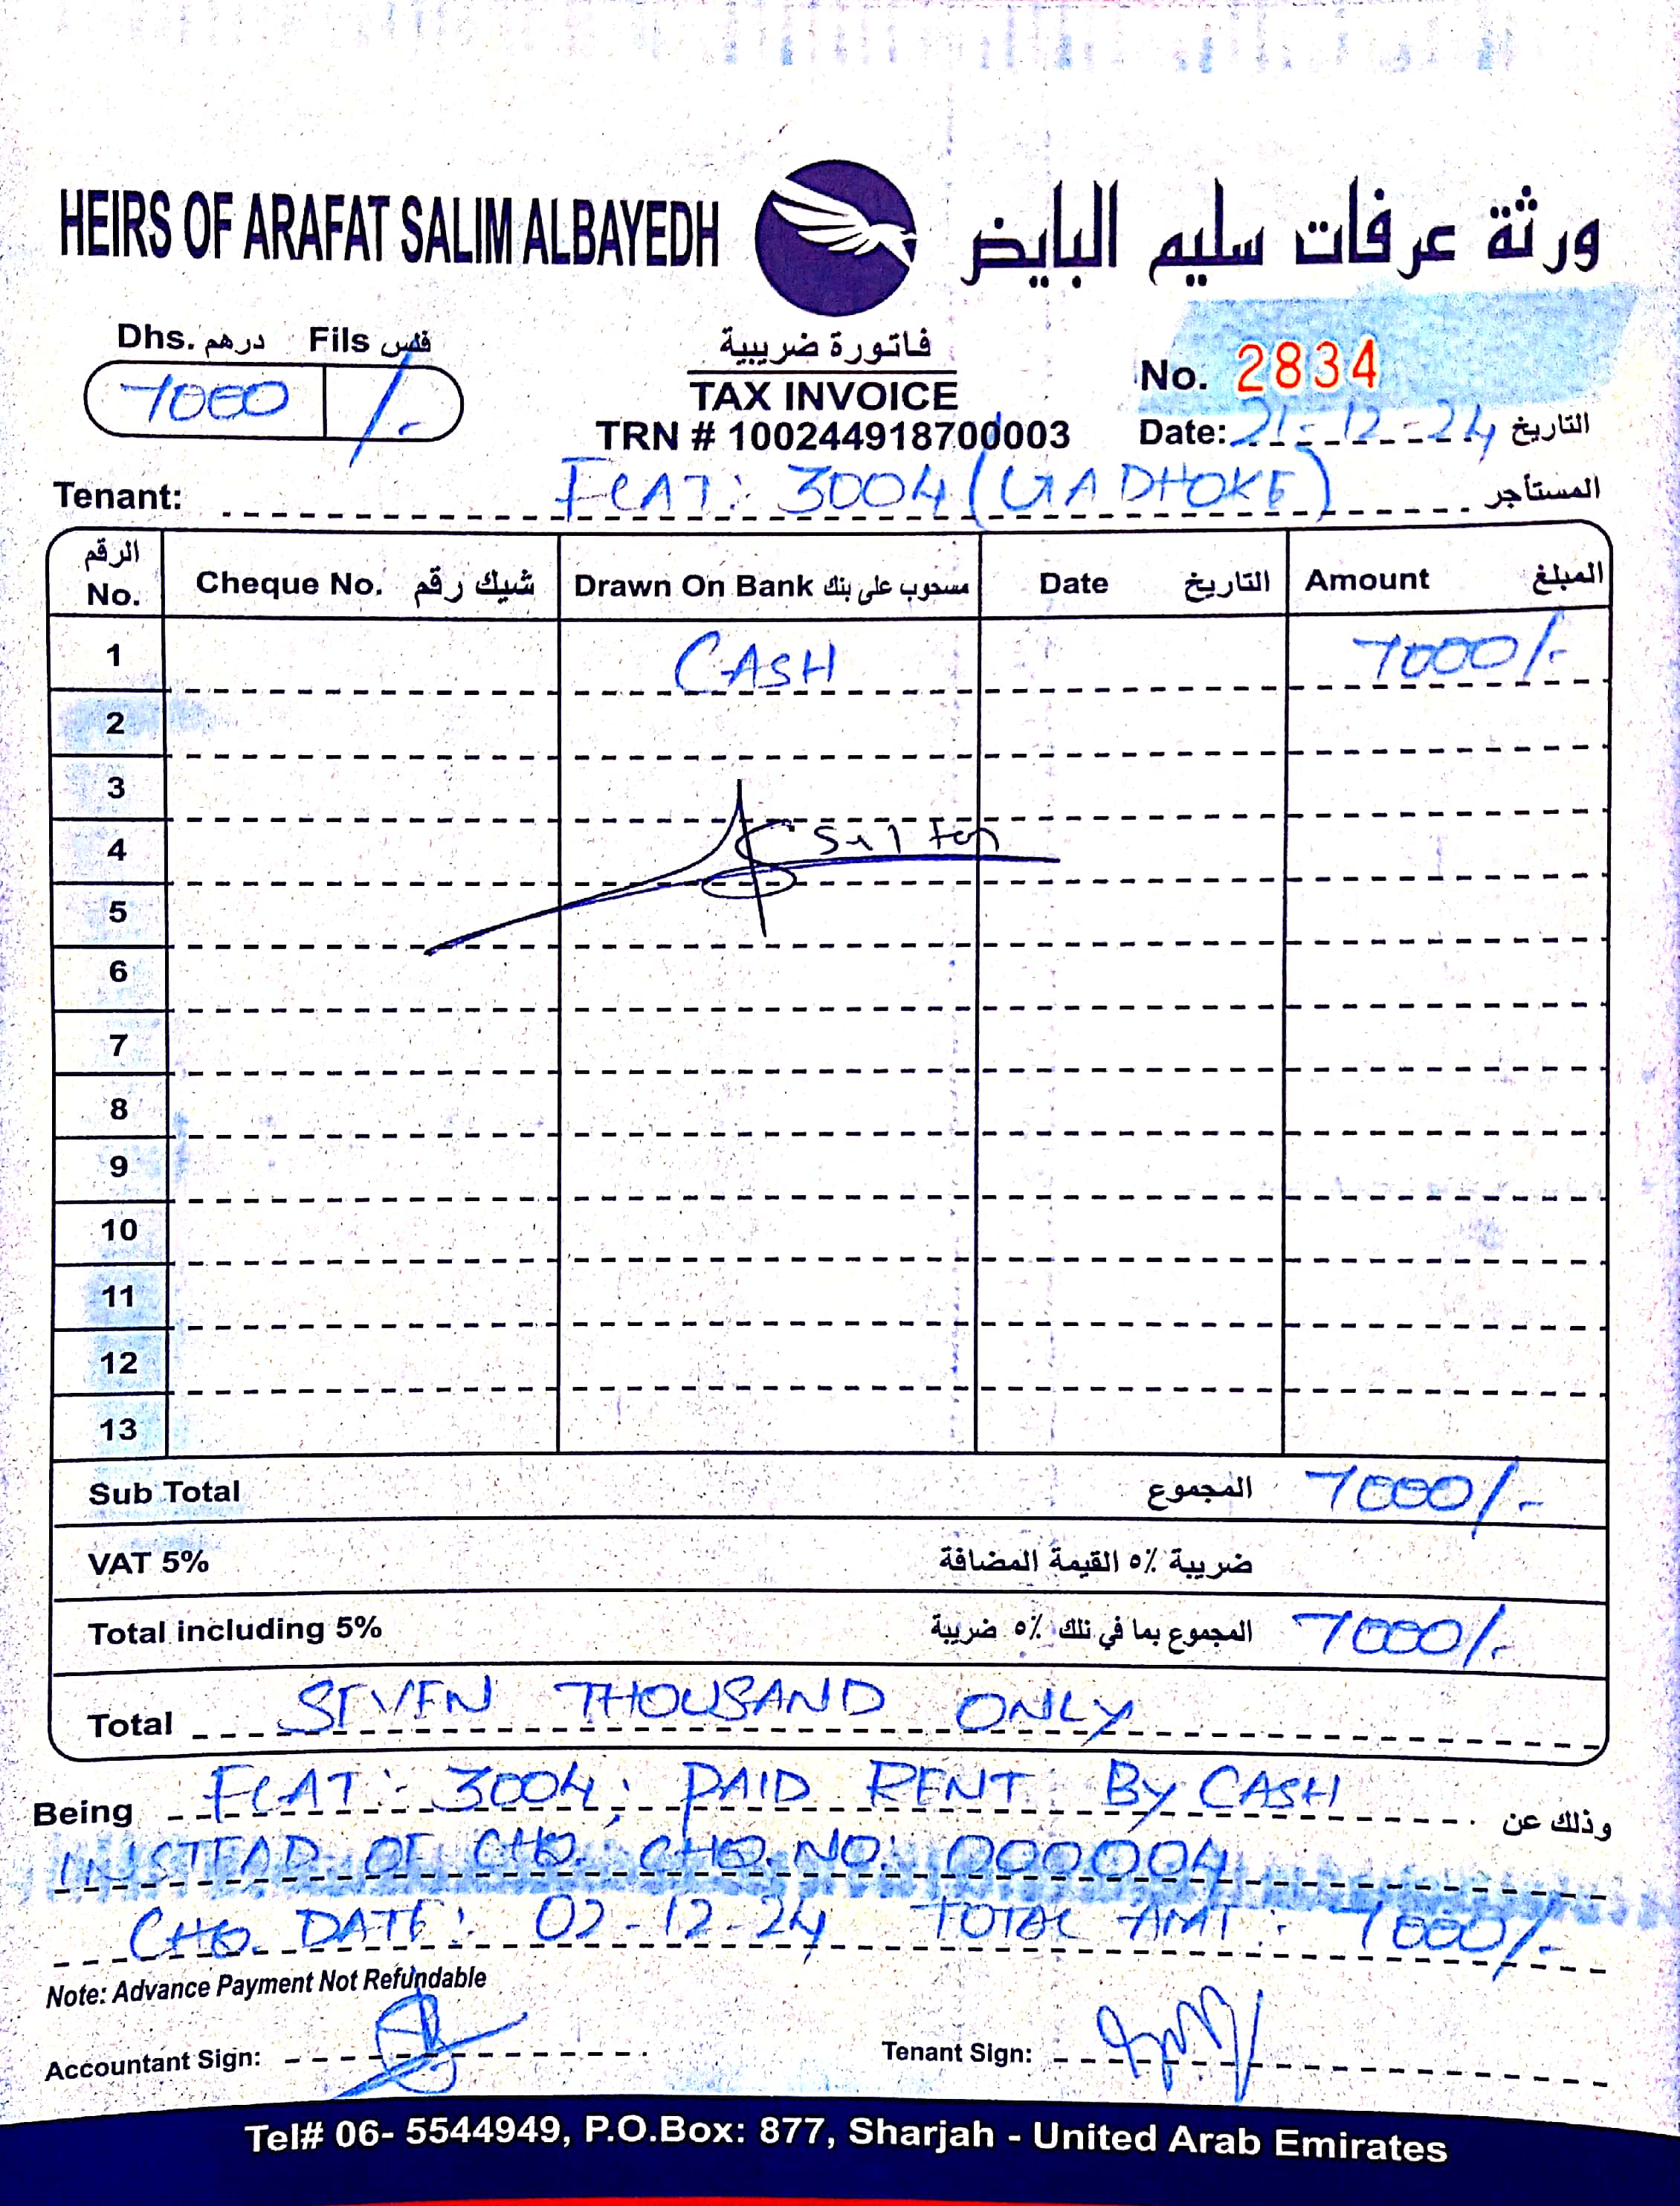 HEIRS OF ARAFAT SALIM ALBAYEDH ورثة عرفات سليم البايض
Dhs. درهم Fils فلس
7000 /-
فاتورة ضريبية
TAX INVOICE
TRN # 100244918700003
No. 2834
Date: 21-12-24 التاريخ
Tenant: FLAT: 3004 (GADHOKE) المستأجر
الرقم No. Cheque No. شيك رقم Drawn On Bank مسحوب على بنك Date التاريخ Amount المبلغ
1 CASH 7000/-
2
3
4
5
6
7
8
9
10
11
12
13
Sub Total المجموع 7000/-
VAT 5% ضريبة ٥٪ القيمة المضافة
Total including 5% المجموع بما في تلك ٥٪ ضريبة 7000/-
Total SEVEN THOUSAND ONLY
Being FLAT: 3004; PAID RENT BY CASH وذلك عن
INSTEAD OF CHQ. CHQ. NO: 000004
CHQ. DATE: 02-12-24 TOTAL AMT: 7000/-
Note: Advance Payment Not Refundable
Accountant Sign: Tenant Sign:
Tel# 06- 5544949, P.O.Box: 877, Sharjah - United Arab Emirates